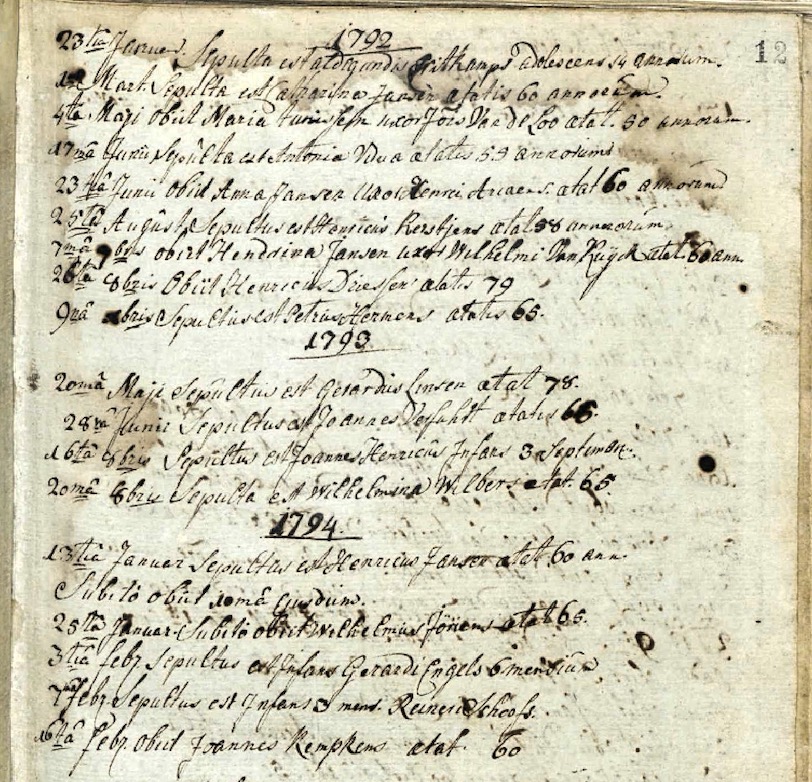 12
1792
23tia Januar. Sepulta est aldegondis adolescens 14 annorum.
Mart. Sepulta est Catharina Jansen ætatis 60 annorum.
4ta Maji obiit Maria tunissen uxor Jöis Van de Loo ætat. 50 annorum.
17mâ Junii sepulta est Antonia Vdua ætatis 55 annorum
23tiâ Junii obiit Anna Jansen Uxor Henrici ætat 60 annorum
25tâ Augusti Sepultus est Henricus Kerstjens ætat 58 annorum
7mâ 9bris obiit Hendrina Jansen uxor Wilhelmi Van Kuÿck ætat. 60 ann.
26tâ 8bris Obiit Henricus Driessen ætatis 79
9nâ bris Sepultus est Petrus Hermens ætatis 65.
1793
20mâ Maji Sepultus est Gerardus Linsen ætat 78.
28va Junii Sepultus est Joannes ætatis 65.
16tâ 8bris Sepultus est Joannes Henricus Infans 3 Septiman.
20mâ 8bris Sepulta est Wilhelmina Wilbers ætat. 65.
1794
13tiâ Januar Sepultus est Henricus Jansen ætat 60 ann.
Subitò obiit 10mâ Ejusdem.
25tâ Januar Subitò obiit Wilhelmus ætat 65.
3tiâ febr. Sepultus est Infans Gerardi Engels 6 mensium
7mâ febr. Sepultus est Infans 3 mens. Reineri Schoofs.
16tâ febr. obiit Joannes Kempkens ætat. 60